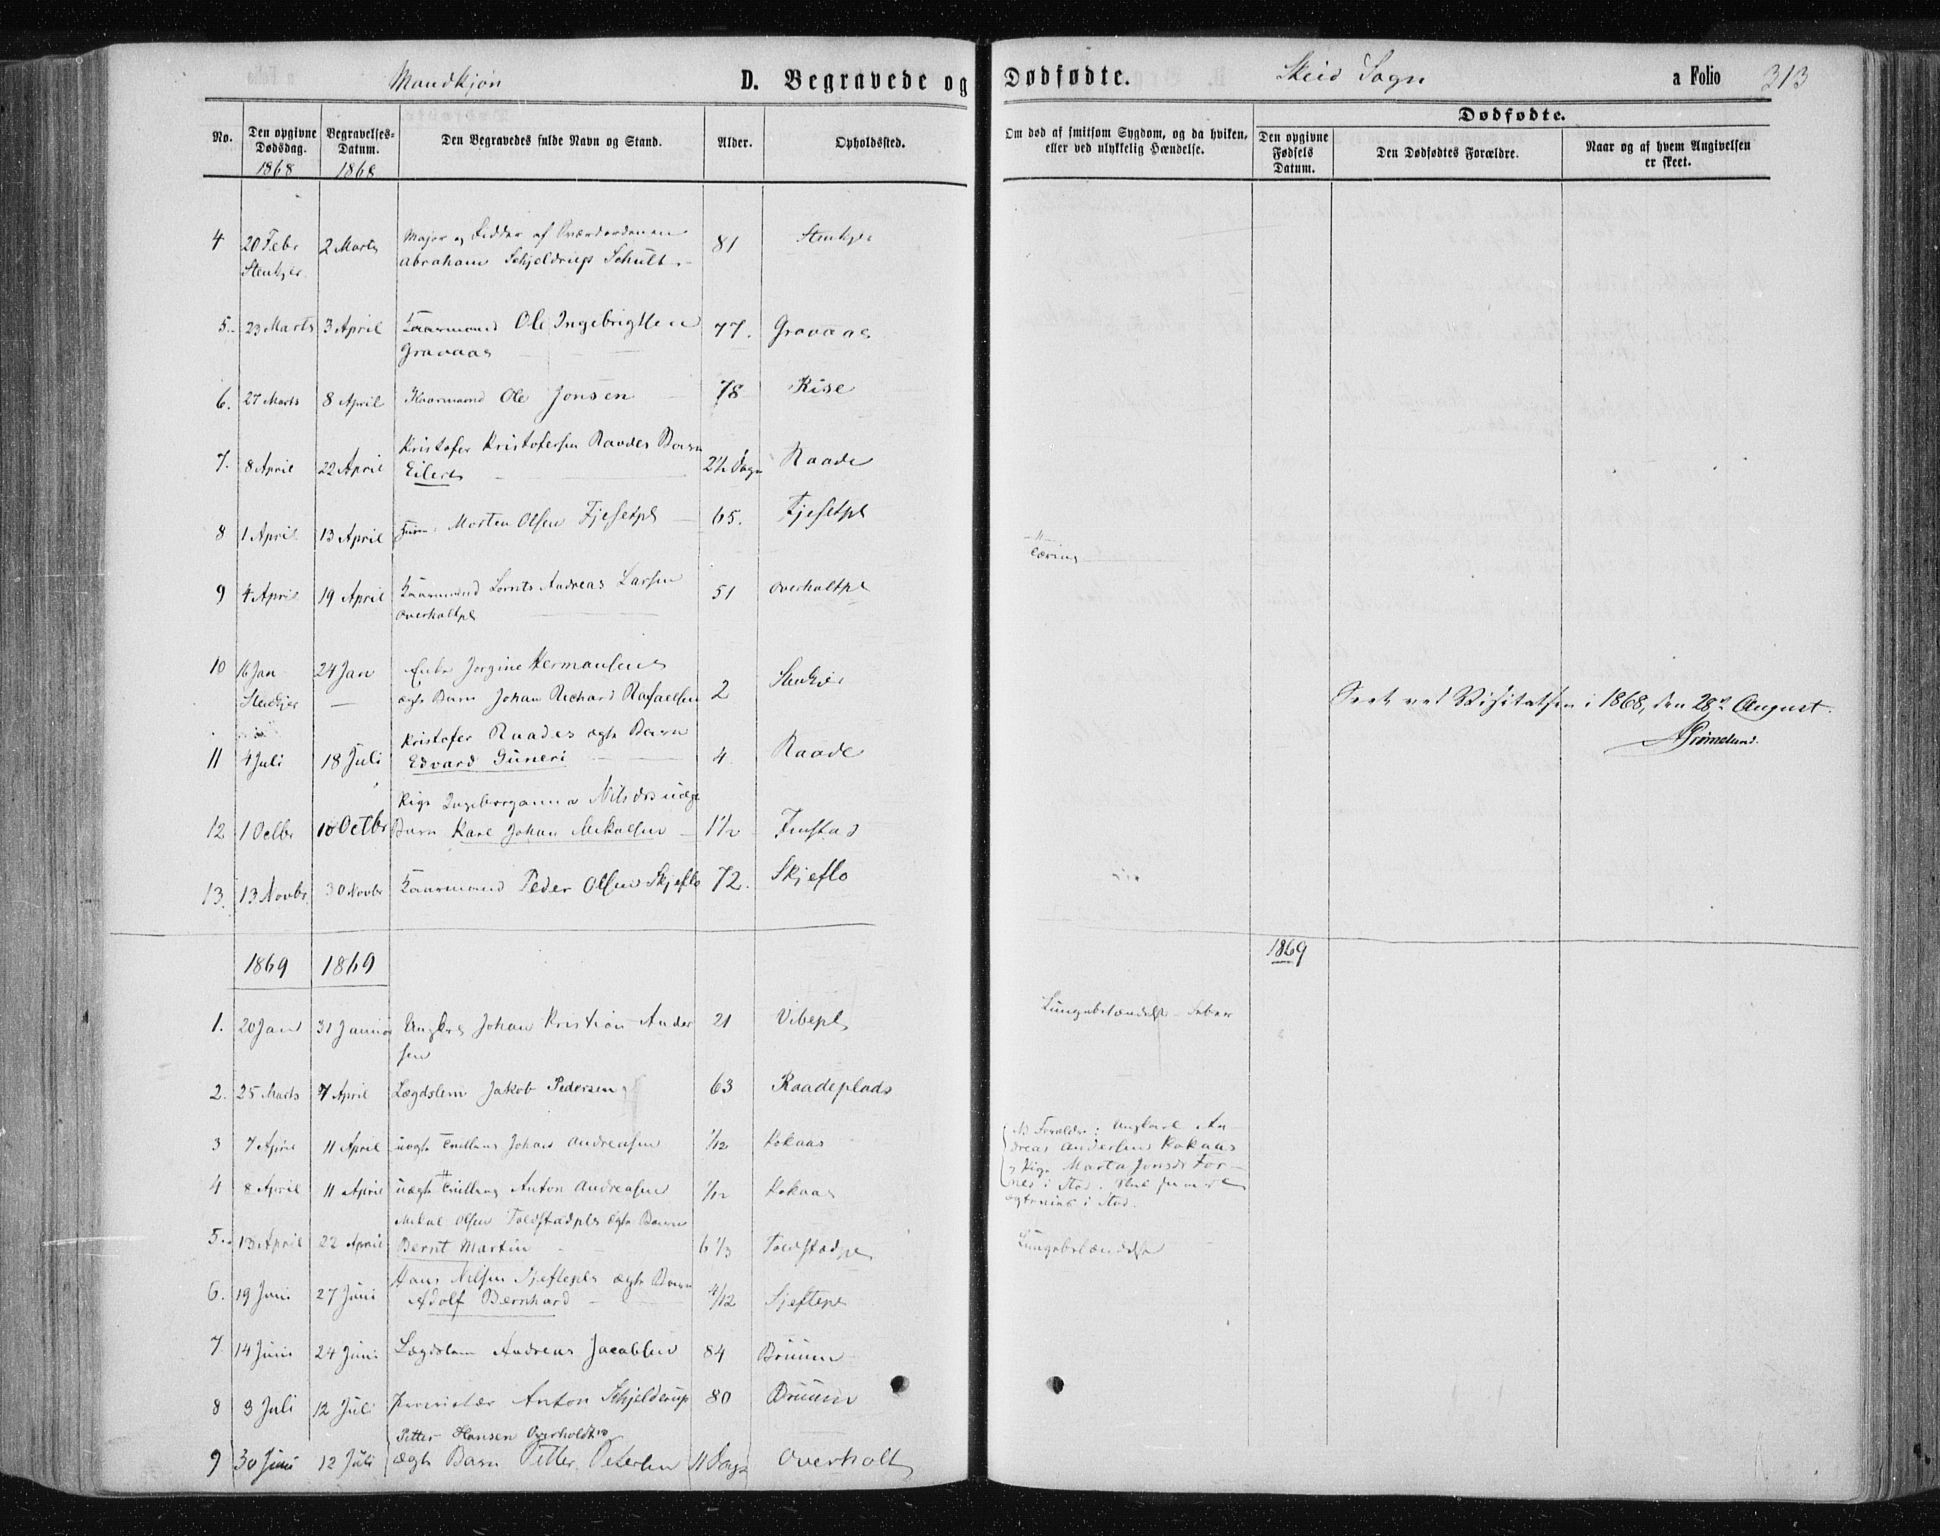 Mandkjøn D. Begravede og Dødfødte. Skeid Sogn a Folio 313
No. Den opgivne Dødsdag. 1868 Begravelses-Datum. 1868 Den Begravedes fulde Navn og Stand. Alder. Opholdssted. Om død af smitsom Sygdom, og da hvilken, eller ved ulykkelig Hændelse.
Dødfødte.
Den opgivne Fødsels Datum. Den Dødfødtes Forældre. Naar og af hvem Angivelsen er skeet.
4 20 Febr 2 Marts Major og Ridder af Sværdordenen 81 Stenkjer
Stenkjer Abraham Schjeldrup Schult
5. 23 Marts 3 April Kaarmand Ole Ingebrigtsen 77. Gravaas
Gravaas
6. 27 Marts 8 April Kaarmand Ole Jonsen 78 Rise
7. 8 April 22 April Kristofer Kristofersen Raades Barn
Eilert 2½ Dage Raade
8 1 April 13 April Morten Olsen Fjesetpl 65. Fjesetpl
9 4 April 19 April Kaarmand Lornts Andreas Larsen 51 Overholtpl
Overholtpl
10 16 Jan 24 Jan Enke Jorgine Hermansens
Stenkjer ægte Barn Johan Richard Rafaelsen 2 Stenkjer
11 4 Juli 18 Juli Kristofer Raades ægte Barn
Edvard Guneri 4 Raade
Pige Ingeborganna Nilsdrs uægte
12 1 Octbr 10 Octbr Barn Karl Johan Mikalsen 1½ Finstad
13. 13 Novbr 30 Novbr Kaarmand Peder Olsen Skjeflo 72. Skjeflo
Seet ved Visitatsen i 1868, den 28de August.
AGrimelund.
1869 1869 1869
1. 20 Jan 31 Januar Ungkrl Johan Kristian Ander 21 Vibepl Lungebetændelse
sen
2. 25 Marts 7 April Lægdslem Jakob Pedersen 63 Raadeplads
3 7 April 11 April uægte Tvilling Johan Andreasen 1/12 Kokaas
4 8 April 11 April uægte Tvilling Anton Andreasen 1/12 Kokaas
NB Forældre: Ungkarl An-
dreas Andersen Kokaas
og Pige Marta Jonsdr For-
nes i Stod.
i Stod.
Mikal Olsen Foldstadpls ægte Barn
5. 13 April 22 April Bernt Martin 6 1/3 Foldstadpl Lungebetændelse
6. 19 Juni 27 Juni Hans Nilsen ægte Barn
Adolf Bernhard 4/12
7 14 Juni 24 Juni Lægdslem Andreas Jacobsen 84 Bruum
8 3 Juli 12 Juli Anton Schjelderup 80 Bruum
Petter Hansen Overholts
9 30 Juni 12 Juli ægte Barn Petter Petersen 11 Dage Overholt